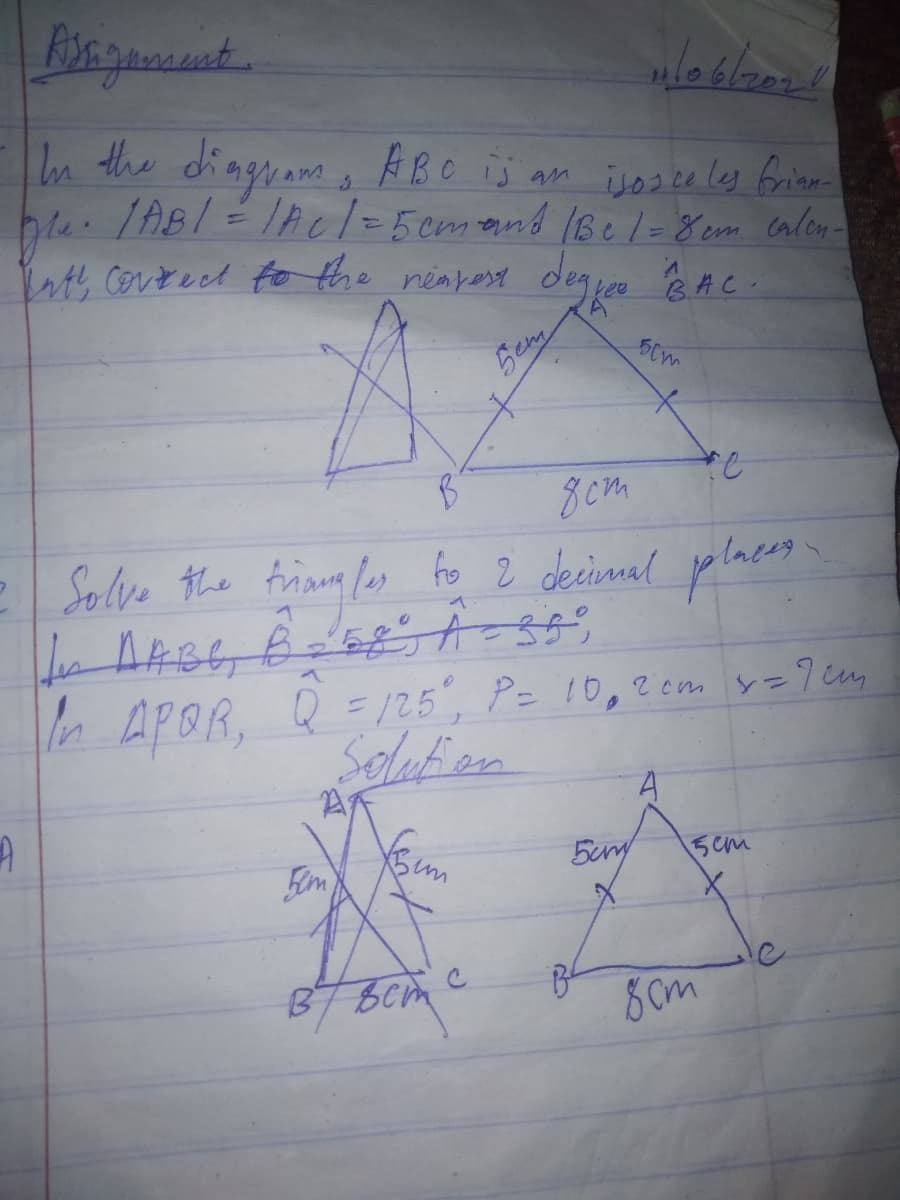 Assignment.
11/06/202
In the diagram, ABC is an isosceles trian-
gle. |AB| = |AC| = 5cm and |BC| = 8cm calcu-
late, correct to the nearest degree B̂AC.
A
5cm
5cm
B
C
8cm
2 Solve the triangles to 2 decimal places
In ΔABC, B̂ = 58°, Â = 35°,
In ΔPQR, Q̂ = 125°, P = 10.2cm r = 7cm
Solution
A
A
5cm
5cm
5cm
5cm
B
8cm
C
B
8cm
C